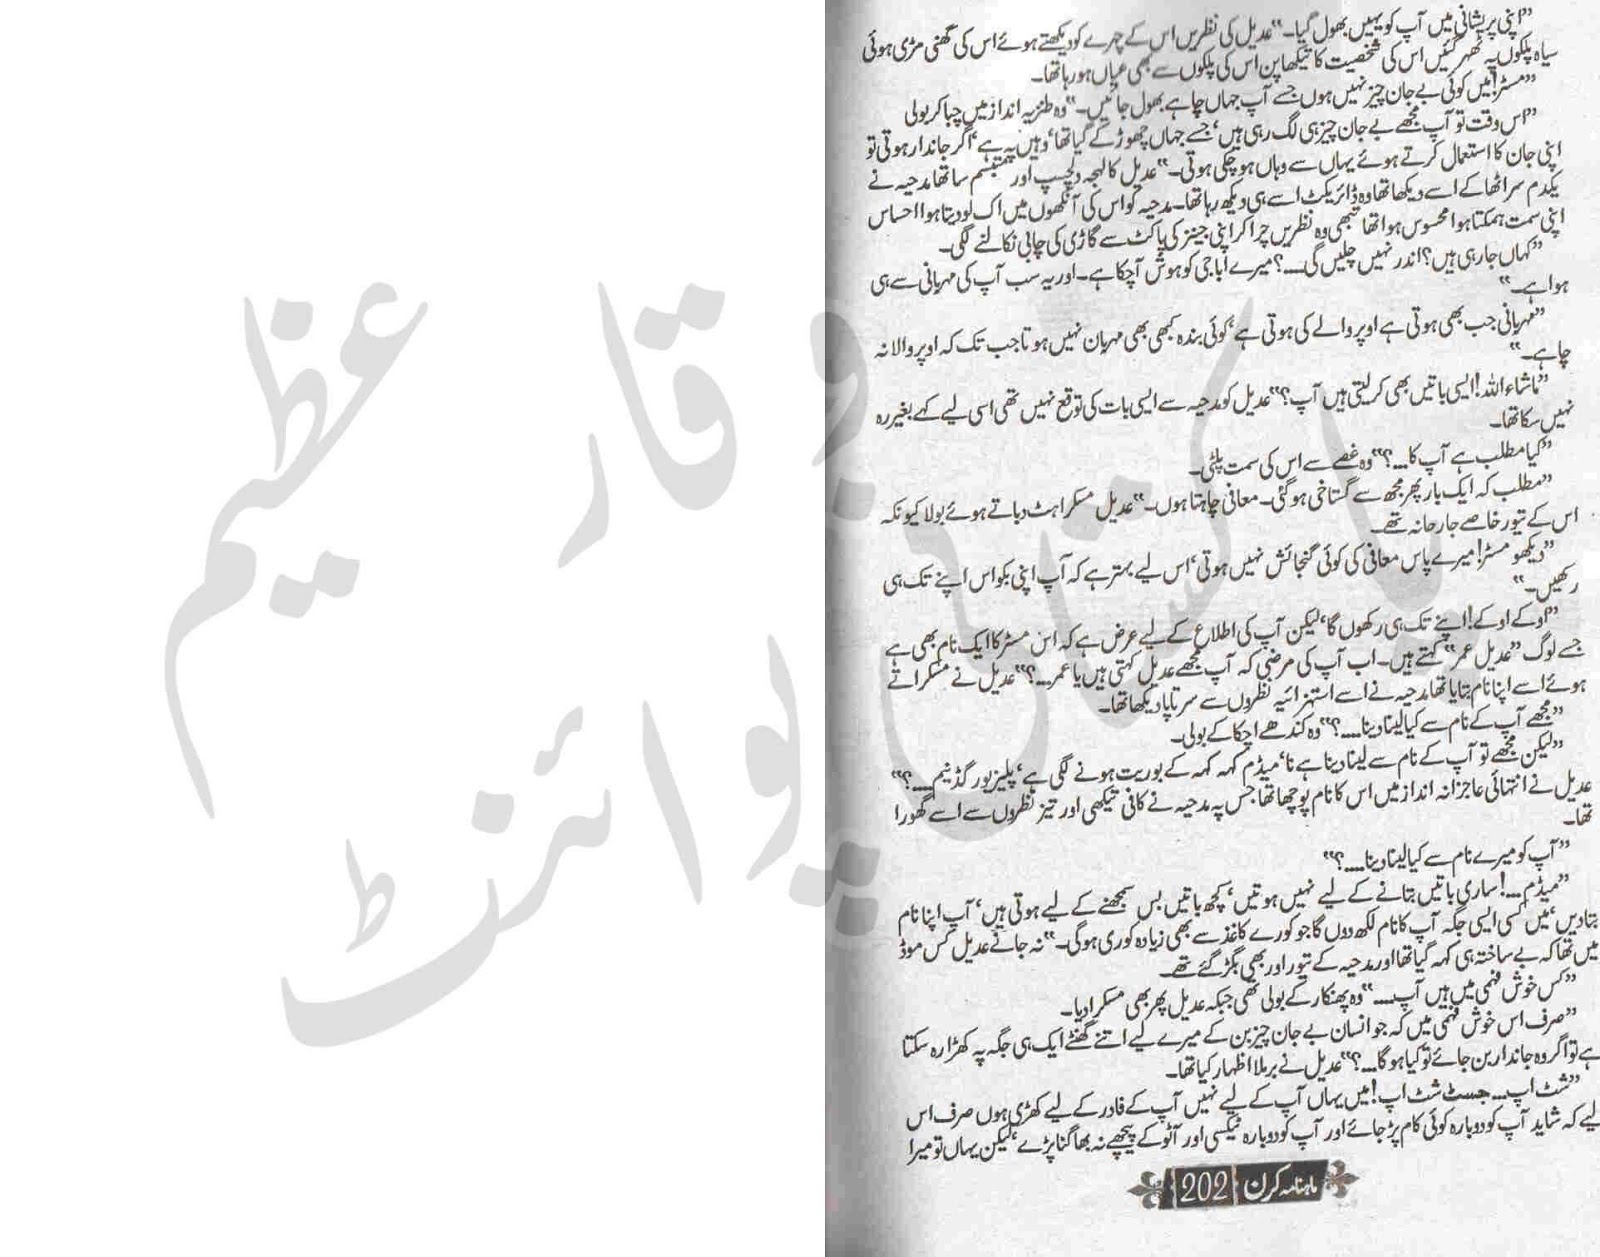 ”اپنی پریشانی میں آپ کو یہیں بھول گیا۔“ عدیل کی نظریں اس کے چہرے کو دیکھتے ہوئے اس کی گھنی مڑی ہوئی
سیاہ پلکوں پہ ٹھہر گئیں اس کی شخصیت کا تیکھا پن اس کی پلکوں سے بھی عیاں ہو رہا تھا۔
”مسٹر! میں کوئی بے جان چیز نہیں ہوں جسے آپ جہاں چاہے بھول جائیں۔“ وہ طنزیہ انداز میں چبا کر بولی
”اس وقت تو آپ مجھے بے جان چیز ہی لگ رہی ہیں‘ جسے جہاں چھوڑ کے گیا تھا‘ وہیں پہ ہے‘ اگر جاندار ہوتی تو
اپنی جان کا استعمال کرتے ہوئے یہاں سے وہاں ہو چکی ہوتی۔“ عدیل کا لہجہ دلچسپ اور متبسم سا تھا مدحیہ نے
یکدم سر اٹھا کے اسے دیکھا تھا وہ ڈائریکٹ اسے ہی دیکھ رہا تھا۔ مدحیہ کو اس کی آنکھوں میں اک لو دیتا ہوا احساس
اپنی سمت ہمکتا ہوا محسوس ہوا تھا تبھی وہ نظریں چرا کر اپنی جینز کی پاکٹ سے گاڑی کی چابی نکالنے لگی۔
”کہاں جا رہی ہیں؟ اندر نہیں چلیں گی....؟ میرے اباجی کو ہوش آ چکا ہے۔ اور یہ سب آپ کی مہربانی سے ہی
ہوا ہے۔“
”مہربانی جب بھی ہوتی ہے اوپر والے کی ہوتی ہے‘ کوئی بندہ کبھی بھی مہربان نہیں ہوتا جب تک کہ اوپر والا نہ
چاہے۔“
”ماشاء اللہ! ایسی باتیں بھی کر لیتی ہیں آپ؟“ عدیل کو مدحیہ سے ایسی بات کی توقع نہیں تھی اسی لیے کہے بغیر رہ
نہیں سکا تھا۔
”کیا مطلب ہے آپ کا....؟“ وہ غصے سے اس کی سمت پلٹی۔
”مطلب کہ ایک بار پھر مجھ سے گستاخی ہو گئی۔ معافی چاہتا ہوں۔“ عدیل مسکراہٹ دباتے ہوئے بولا کیونکہ
اس کے تیور خاصے جارحانہ تھے۔
”دیکھو مسٹر! میرے پاس معافی کی کوئی گنجائش نہیں ہوتی‘ اس لیے بہتر ہے کہ آپ اپنی بکواس اپنے تک ہی
رکھیں۔“
”اوکے اوکے! اپنے تک ہی رکھوں گا‘ لیکن آپ کی اطلاع کے لیے عرض ہے کہ اس مسٹر کا ایک نام بھی ہے
جسے لوگ ”عدیل عمر“ کہتے ہیں۔ اب آپ کی مرضی کہ آپ مجھے عدیل کہتی ہیں یا عمر....؟“ عدیل نے مسکراتے
ہوئے اسے اپنا نام بتایا تھا مدحیہ نے اسے استہزائیہ نظروں سے سرتاپا دیکھا تھا۔
”مجھے آپ کے نام سے کیا لینا دینا....؟“ وہ کندھے اچکا کے بولی۔
”لیکن مجھے تو آپ کے نام سے لینا دینا ہے نا‘ میڈم کہہ کہہ کے بوریت ہونے لگی ہے‘ پلیز یور گڈ نیم....؟“
عدیل نے انتہائی عاجزانہ انداز میں اس کا نام پوچھا تھا جس پہ مدحیہ نے کافی تیکھی اور تیز نظروں سے اسے گھورا
تھا۔
”آپ کو میرے نام سے کیا لینا دینا....؟“
”میڈم....! ساری باتیں بتانے کے لیے نہیں ہوتیں‘ کچھ باتیں بس سمجھنے کے لیے ہوتی ہیں‘ آپ اپنا نام
بتا دیں‘ میں کسی ایسی جگہ آپ کا نام لکھ دوں گا جو کورے کاغذ سے بھی زیادہ کوری ہو گی۔“ نہ جانے عدیل کس موڈ
میں تھا کہ بے ساختہ ہی کہہ گیا تھا اور مدحیہ کے تیور اور بھی بگڑ گئے تھے۔
”کس خوش فہمی میں ہیں آپ....“ وہ پھنکار کے بولی تھی جبکہ عدیل پھر بھی مسکرا دیا۔
”صرف اس خوش فہمی میں کہ جو انسان بے جان چیز بن کے میرے لیے اتنے گھنٹے ایک ہی جگہ پہ کھڑا رہ سکتا
ہے تو اگر وہ جاندار بن جائے تو کیا ہو گا....؟“ عدیل نے برملا اظہار کیا تھا۔
”شٹ اپ.... جسٹ شٹ اپ! میں یہاں آپ کے لیے نہیں آپ کے فادر کے لیے کھڑی ہوں صرف اس
لیے کہ شاید آپ کو دوبارہ کوئی کام پڑ جائے اور آپ کو دوبارہ ٹیکسی اور آٹو کے پیچھے نہ بھاگنا پڑے‘ لیکن یہاں تو میرا
ماہنامہ کرن 202
وقار عظیم
پاکستانی پوائنٹ